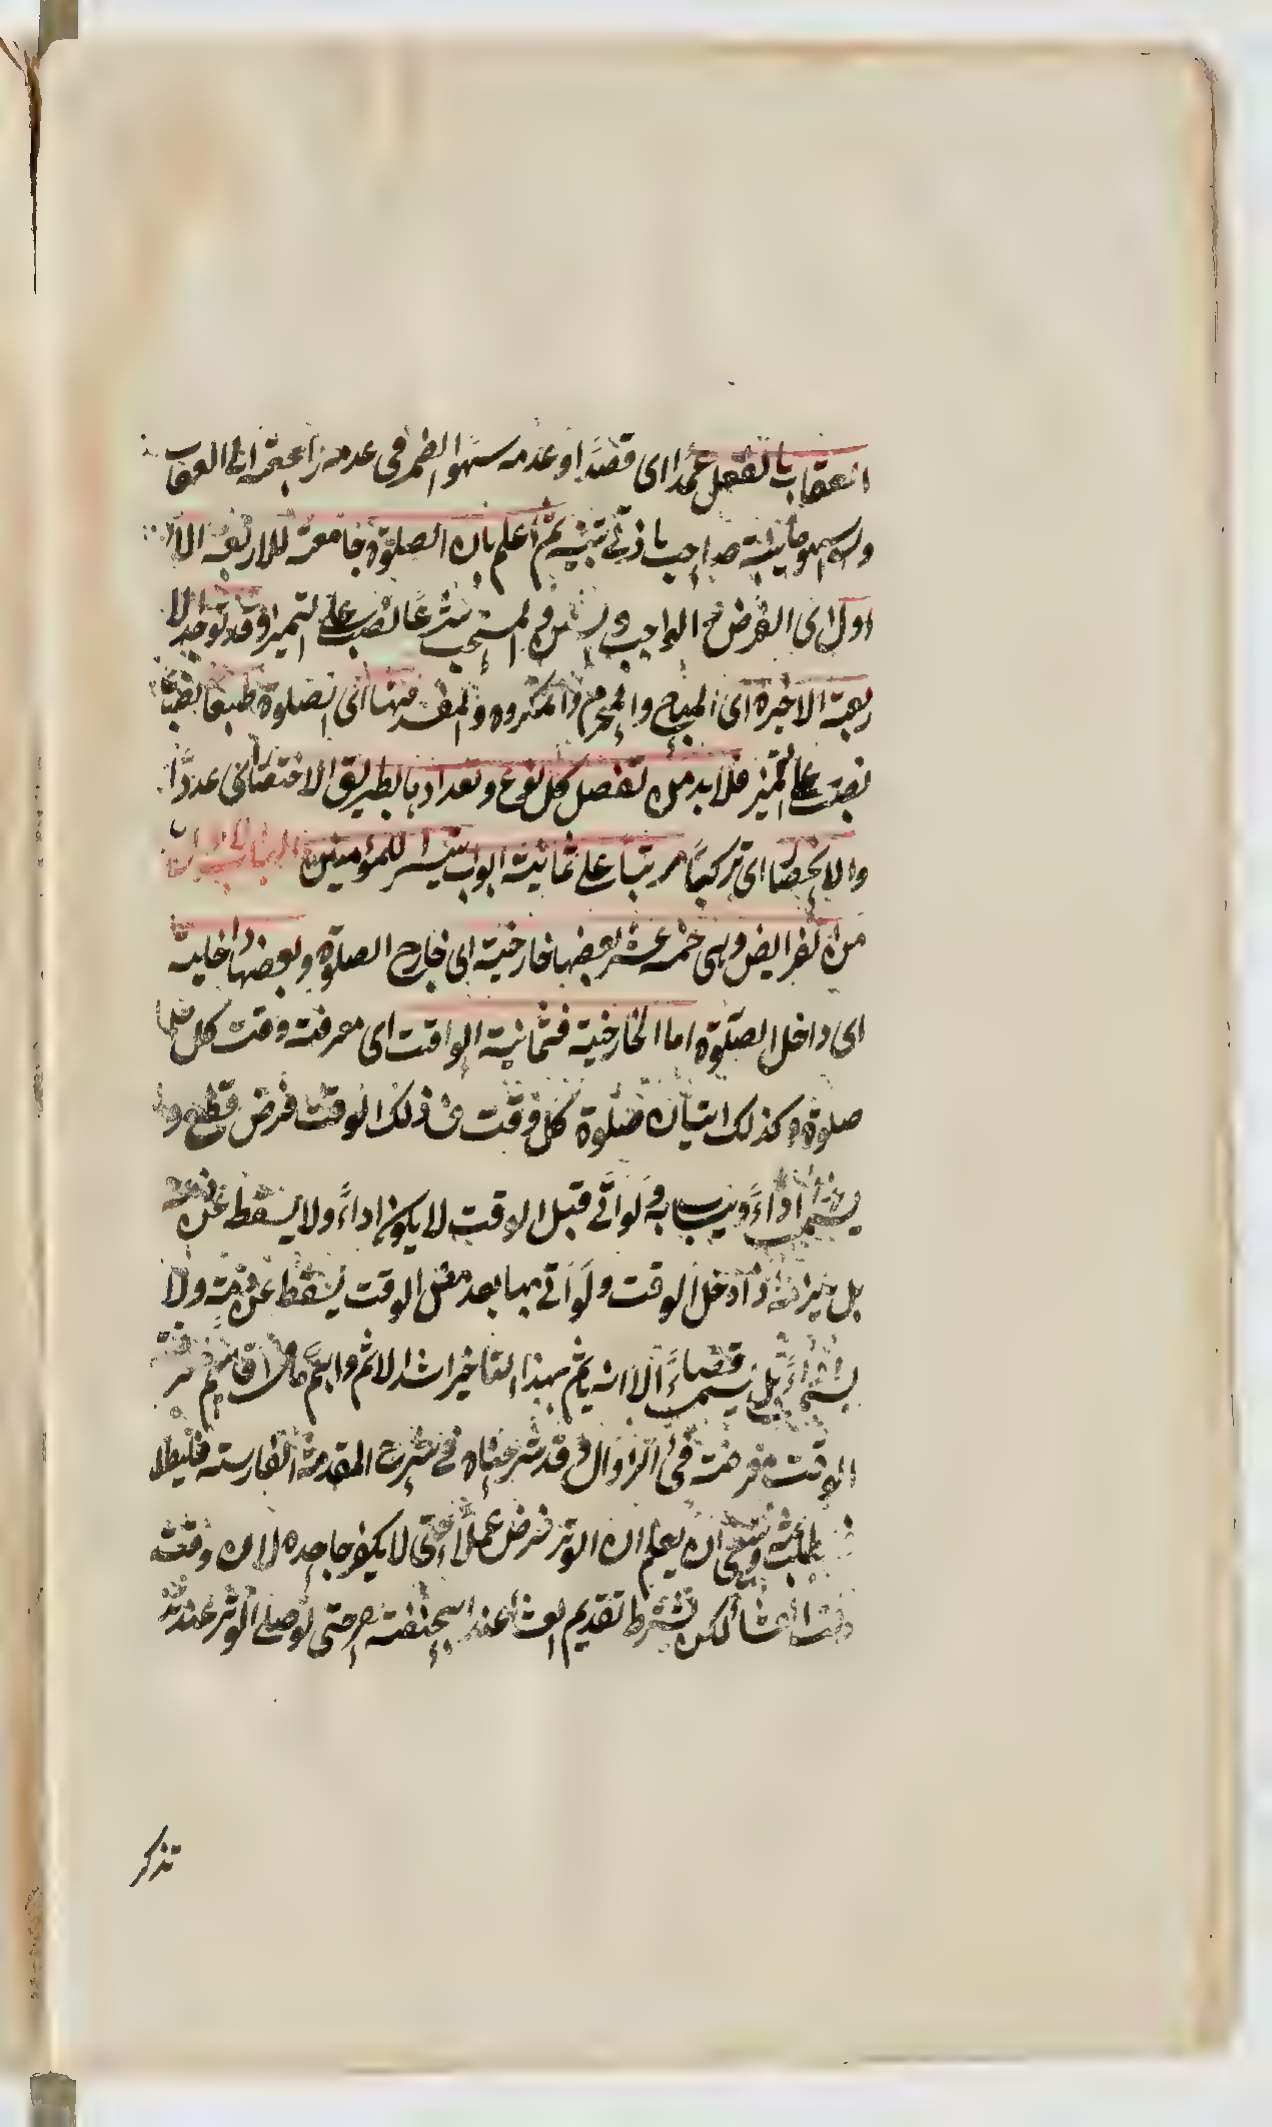 العقاب بالفعل عمدا اى قصدا او عدمه سهوا الضمير فى عدمه راجعة الى العقاب
باذنى تنبيه ثم اعلم بان الصلوة جامعة للاربعة الا
اول اى الفرض و الواجب و السنن و المستحب شرعا نصب على التميز و قد توجد الا
ربعة الاخيرة اى المباح والمحرم والمكروه والمفسد فيها اى الصلوة طبعا
نصب على التميز فلا بد من تفصل كل نوع و تعداد بالطريق الاختصار اى عددا
والانحصار اى تركيبا مرتبا على ثمانية ابواب تيسيرا للمؤمنين الباب الاول
من الفرايض وهى خمسة عشر بعضها خارجية اى خارج الصلوة وبعضها داخلية
اى داخل الصلوة اما الخارجية فثمانية الواقت اى معرفة وقت كل
صلوة وكذلك اتيان صلوة كل وقت فى ذلك الوقت فرض قطع
يسمى اداءً ويثاب به ولو اتى قبل الوقت لا يكون اداءً ولا يسقط عن ذمته
بل اذا دخل الوقت ولو اتى بها بعد مضى الوقت يسقط عن ذمته ولا
يسمى اداء بل يسمى قضاءً الا انه ياثم بهذا التاخير اشد الاثم
الوقت فئ الزوال و قد شرحناه فى شرح المقدمة الفارسية فليطا
وينبغى ان يعلم ان الوتر فرض عملا حتى لا يكفر جاحده لان وقته
وقت العشا لكن يشترط تقديم العشا عند ابيحنيفة حتى لو صلى الوتر
تذكر